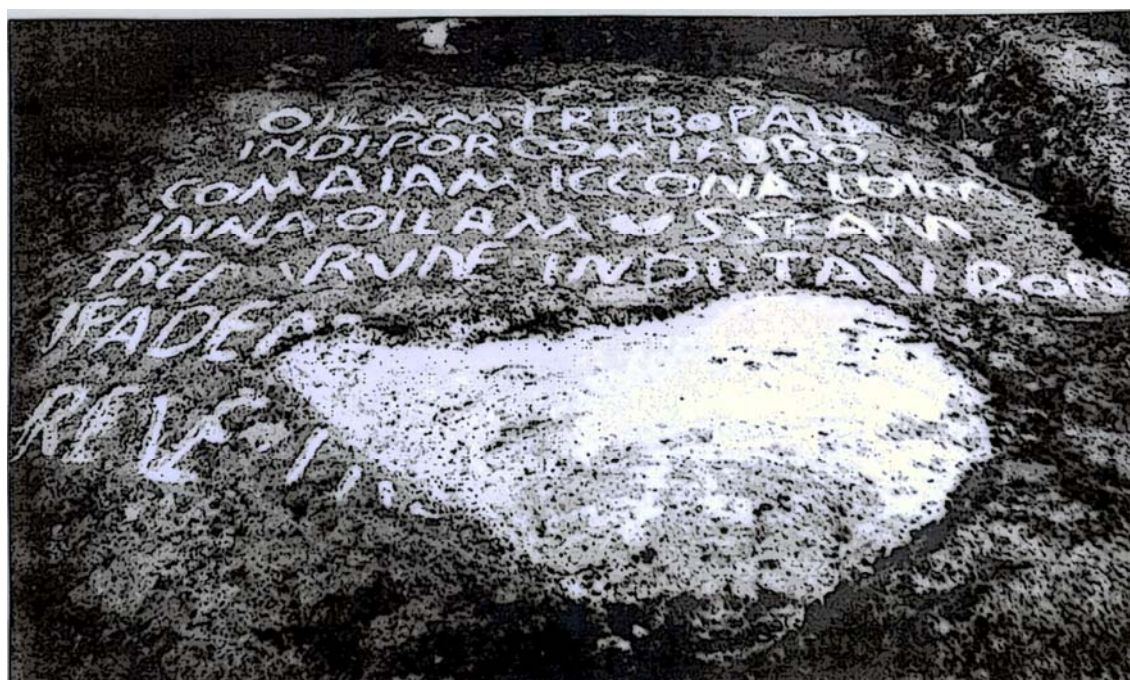 OILAM TREBOPALA
INDI PORCOM LAEBO
COMAIAM ICCONA LOIM
INNA OILAM VSSEAM
INDI TAVROM
IFADEM